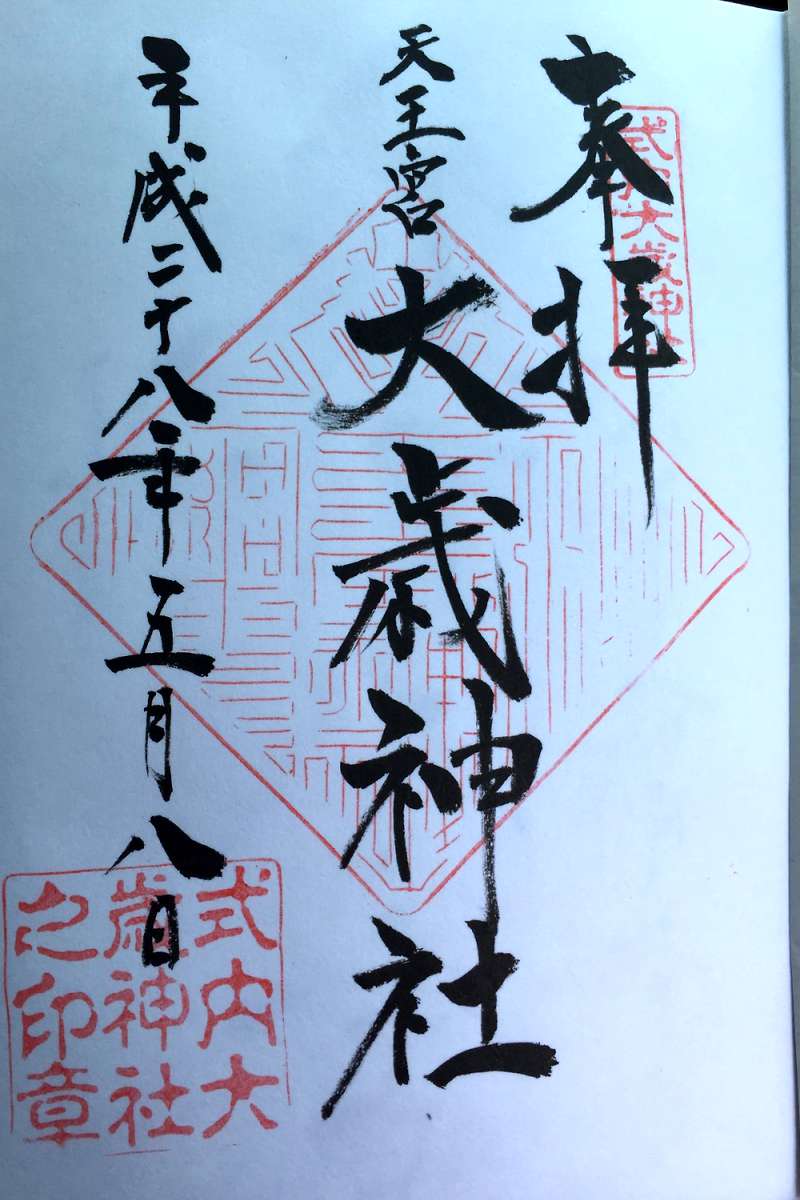 奉拝
式内大歳神社
天王宮 大歳神社
平成二十八年五月八日
式内大
歳神社
之印章